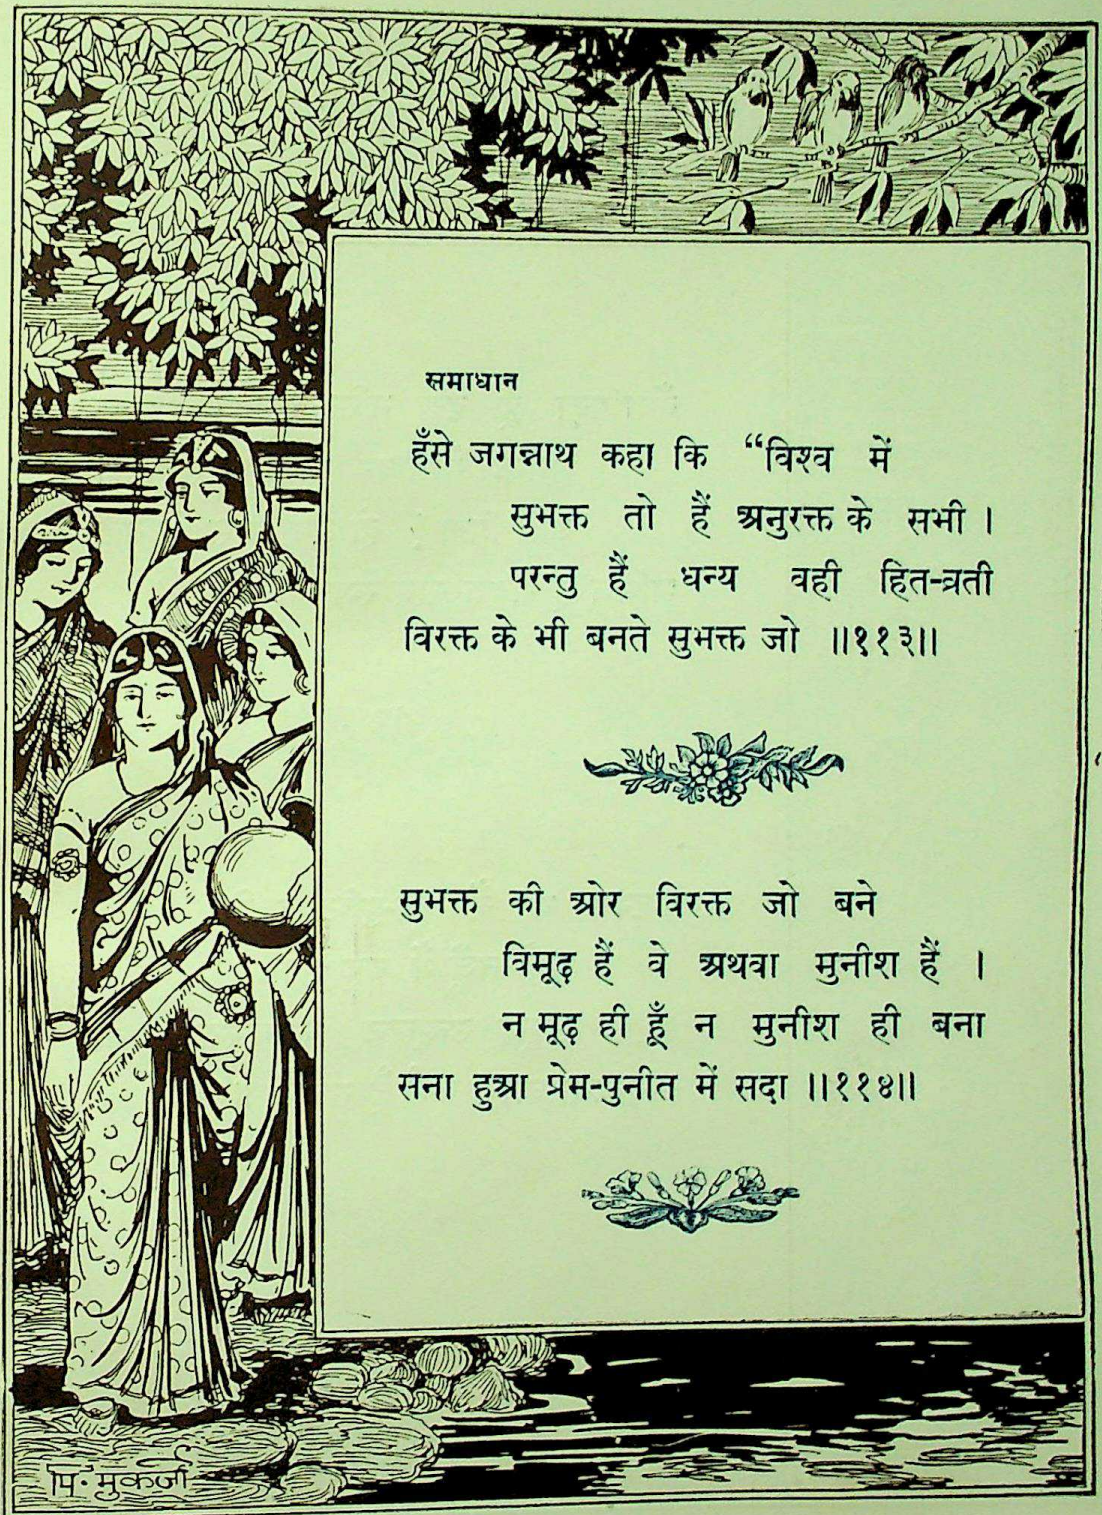 समाधान
हँसे जगन्नाथ कहा कि “विश्व में
सुभक्त तो हैं अनुरक्त के सभी ।
परन्तु हैं धन्य वही हित-व्रती
विरक्त के भी बनते सुभक्त जो ॥११३॥
सुभक्त की ओर विरक्त जो बने
विमूढ़ हैं वे अथवा मुनीश हैं ।
न मूढ़ ही हूँ न मुनीश ही बना
सना हुआ प्रेम-पुनीत में सदा ॥११४॥
पि. मुकर्जी